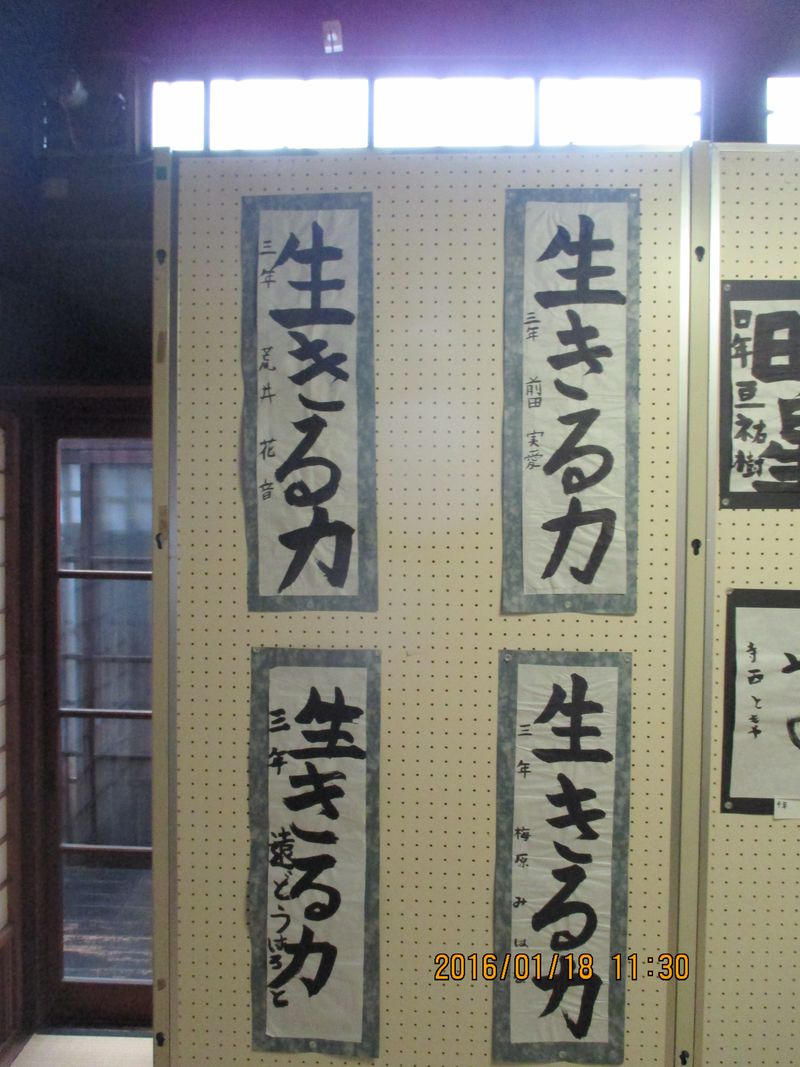 生きる力
三年 前田 実愛
生きる力
三年 荒井 花音
生きる力
三年 梅原 みは
生きる力
三年 遠どうはると
寺西とも
2016/01/18 11:30